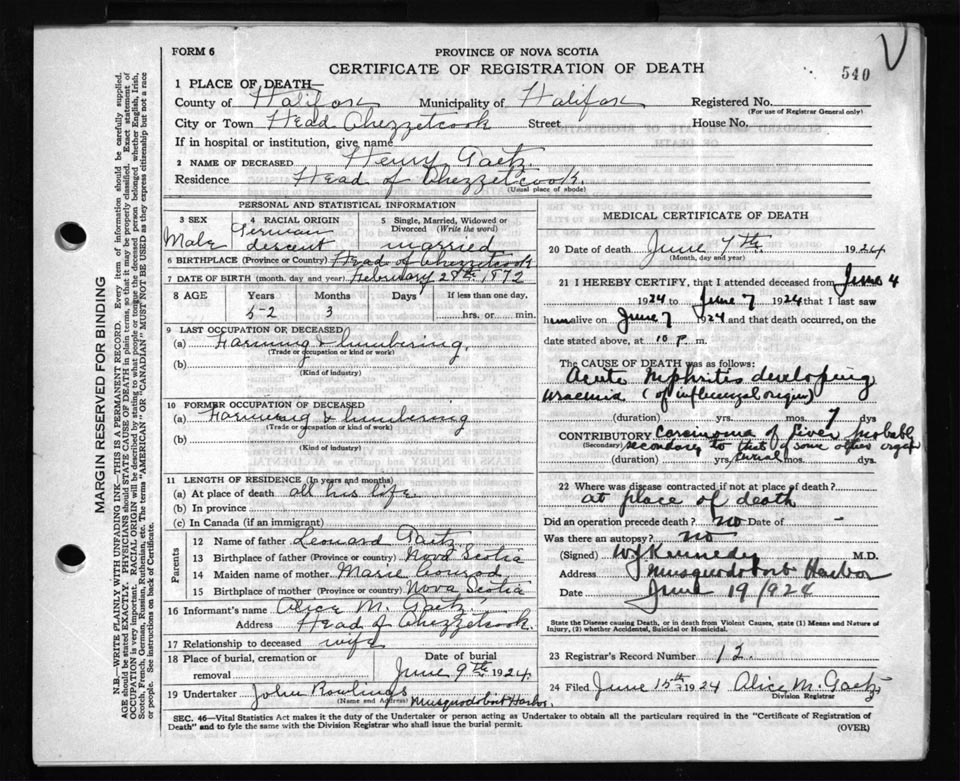 FORM 6
PROVINCE OF NOVA SCOTIA
CERTIFICATE OF REGISTRATION OF DEATH
540
1 PLACE OF DEATH—
County of Halifax Municipality of Halifax Registered No.
(For use of Registrar General only)
City or Town Head Chezzetcook Street House No.
If in hospital or institution, give name
2 NAME OF DECEASED Henry Gaetz.
Residence Head of Chezzetcook.
(Usual place of abode)
PERSONAL AND STATISTICAL INFORMATION
3 SEX Male
4 RACIAL ORIGIN German descent
5 Single, Married, Widowed or Divorced (Write the word) married
6 BIRTHPLACE (Province or Country) Head of Chezzetcook
7 DATE OF BIRTH (month, day and year) February 28th. 1872
8 AGE Years Months Days If less than one day,
52 3 hrs. or min.
9 LAST OCCUPATION OF DECEASED
(a) Farming & lumbering.
(Trade or occupation or kind or work)
(b)
(Kind of industry)
10 FORMER OCCUPATION OF DECEASED
(a) Farming & lumbering
(Trade or occupation or kind or work)
(b)
(Kind of industry)
11 LENGTH OF RESIDENCE (In years and months)
(a) At place of death all his life
(b) In province
(c) In Canada (if an immigrant)
Parents
12 Name of father Leonard Gaetz
13 Birthplace of father (Province or country) Nova Scotia
14 Maiden name of mother Marie Conrod
15 Birthplace of mother (Province or country) Nova Scotia
16 Informant's name Alice M. Gaetz.
Address Head of Chezzetcook.
17 Relationship to deceased wife
18 Place of burial, cremation or removal
Date of burial June 9th 1924
19 Undertaker John Rowlings
(Name and Address) Musquodoboit Harbor.
MEDICAL CERTIFICATE OF DEATH
20 Date of death June 7th 1924
(Month, day and year)
21 I HEREBY CERTIFY, that I attended deceased from June 4
1924 to June 7 1924 that I last saw
him alive on June 7 1924 and that death occurred, on
date stated above, at 10 P. m.
The CAUSE OF DEATH was as follows:
Acute Nephritis developing
Uraemia (of influenzal origin)
(duration) yrs. mos. 7 dys
CONTRIBUTORY Carcinoma of liver probabl
(Secondary) secondary to that of some other organ
(duration) yrs. mos. dys.
22 Where was disease contracted if not at place of death?
at place of death
Did an operation precede death? no Date of -
Was there an autopsy? no
(Signed) W J Kennedy M.D.
Address Musquodoboit Harbor
Date June 19/924
State the Disease Causing Death, or in death from Violent Causes, state (1) Means and Nature of
Injury, (2) whether Accidental, Suicidal or Homicidal.
23 Registrar's Record Number 12.
24 Filed June 15th 1924 Alice M. Gaetz
Division Registrar
SEC. 46—Vital Statistics Act makes it the duty of the Undertaker or person acting as Undertaker to obtain all the particulars required in the "Certificate of Registration of
Death" and to fyle the same with the Division Registrar who shall issue the burial permit.
(OVER)
MARGIN RESERVED FOR BINDING
N.B.—WRITE PLAINLY WITH UNFADING INK—THIS IS A PERMANENT RECORD. Every item of information should be carefully supplied.
AGE should be stated EXACTLY. PHYSICIANS should STATE CAUSE OF DEATH in plain terms, so that it may be properly classified. Exact statement of
OCCUPATION is very important. RACIAL ORIGIN will be described by stating to what people or tongue the deceased person belonged whether English, Irish,
Scotch, French, German, Russian, Ruthenian, etc. The terms "AMERICAN" OR "CANADIAN" MUST NOT BE USED as they express citizenship but not a race
or people. See instructions on back of Certificate.